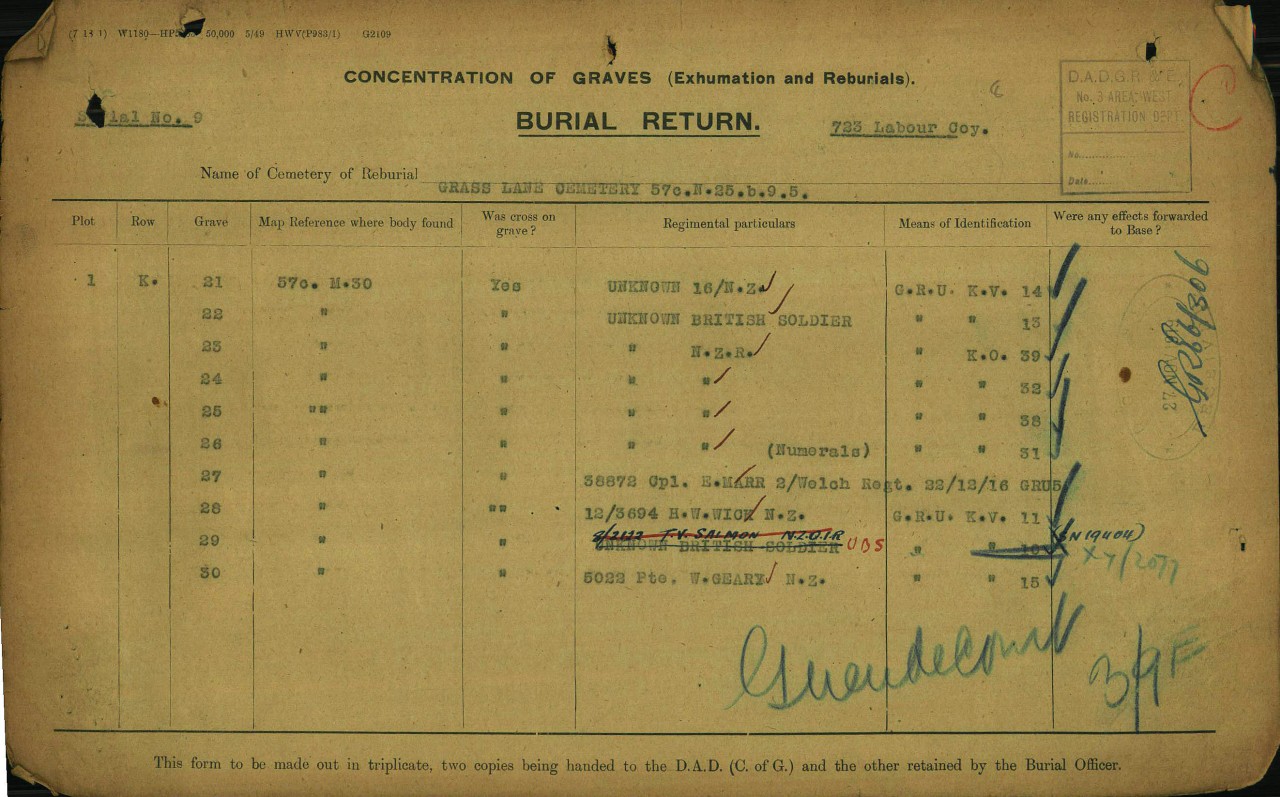 (7 18 1) W1180—HP 50,000 5/49 HWV(P983/1) G2109
CONCENTRATION OF GRAVES (Exhumation and Reburials).
D.A.D.G.R. & E.
No. 3 AREA WEST
REGISTRATION DEPT.
No.
Date
C
Serial No. 9
BURIAL RETURN.
723 Labour Coy.
Name of Cemetery of Reburial GRASS LANE CEMETERY 57c.N.25.b.9.5.
Plot Row Grave Map Reference where body found Was cross on grave? Regimental particulars Means of Identification Were any effects forwarded to Base?
1 K. 21 57c. M.30 Yes UNKNOWN 16/N.Z. G.R.U. K.V. 14
22 " " UNKNOWN BRITISH SOLDIER " " 13
23 " " " N.Z.R. " K.O. 39
24 " " " " " " 32
25 "" " " " " " 38
26 " " " " (Numerals) " " 31
27 " " 38872 Cpl. E.MARR 2/Welch Regt. 22/12/16 GRU5
28 " "" 12/3694 H.W.WICK N.Z. G.R.U. K.V. 11
8/2132 T.V. SALMON N.Z.O.I.R (SN 19404)
29 " " UNKNOWN BRITISH SOLDIER UBS " " 10
30 " " 5022 Pte. W.GEARY N.Z. " " 15
Gueudecourt
3/9F
This form to be made out in triplicate, two copies being handed to the D.A.D. (C. of G.) and the other retained by the Burial Officer.